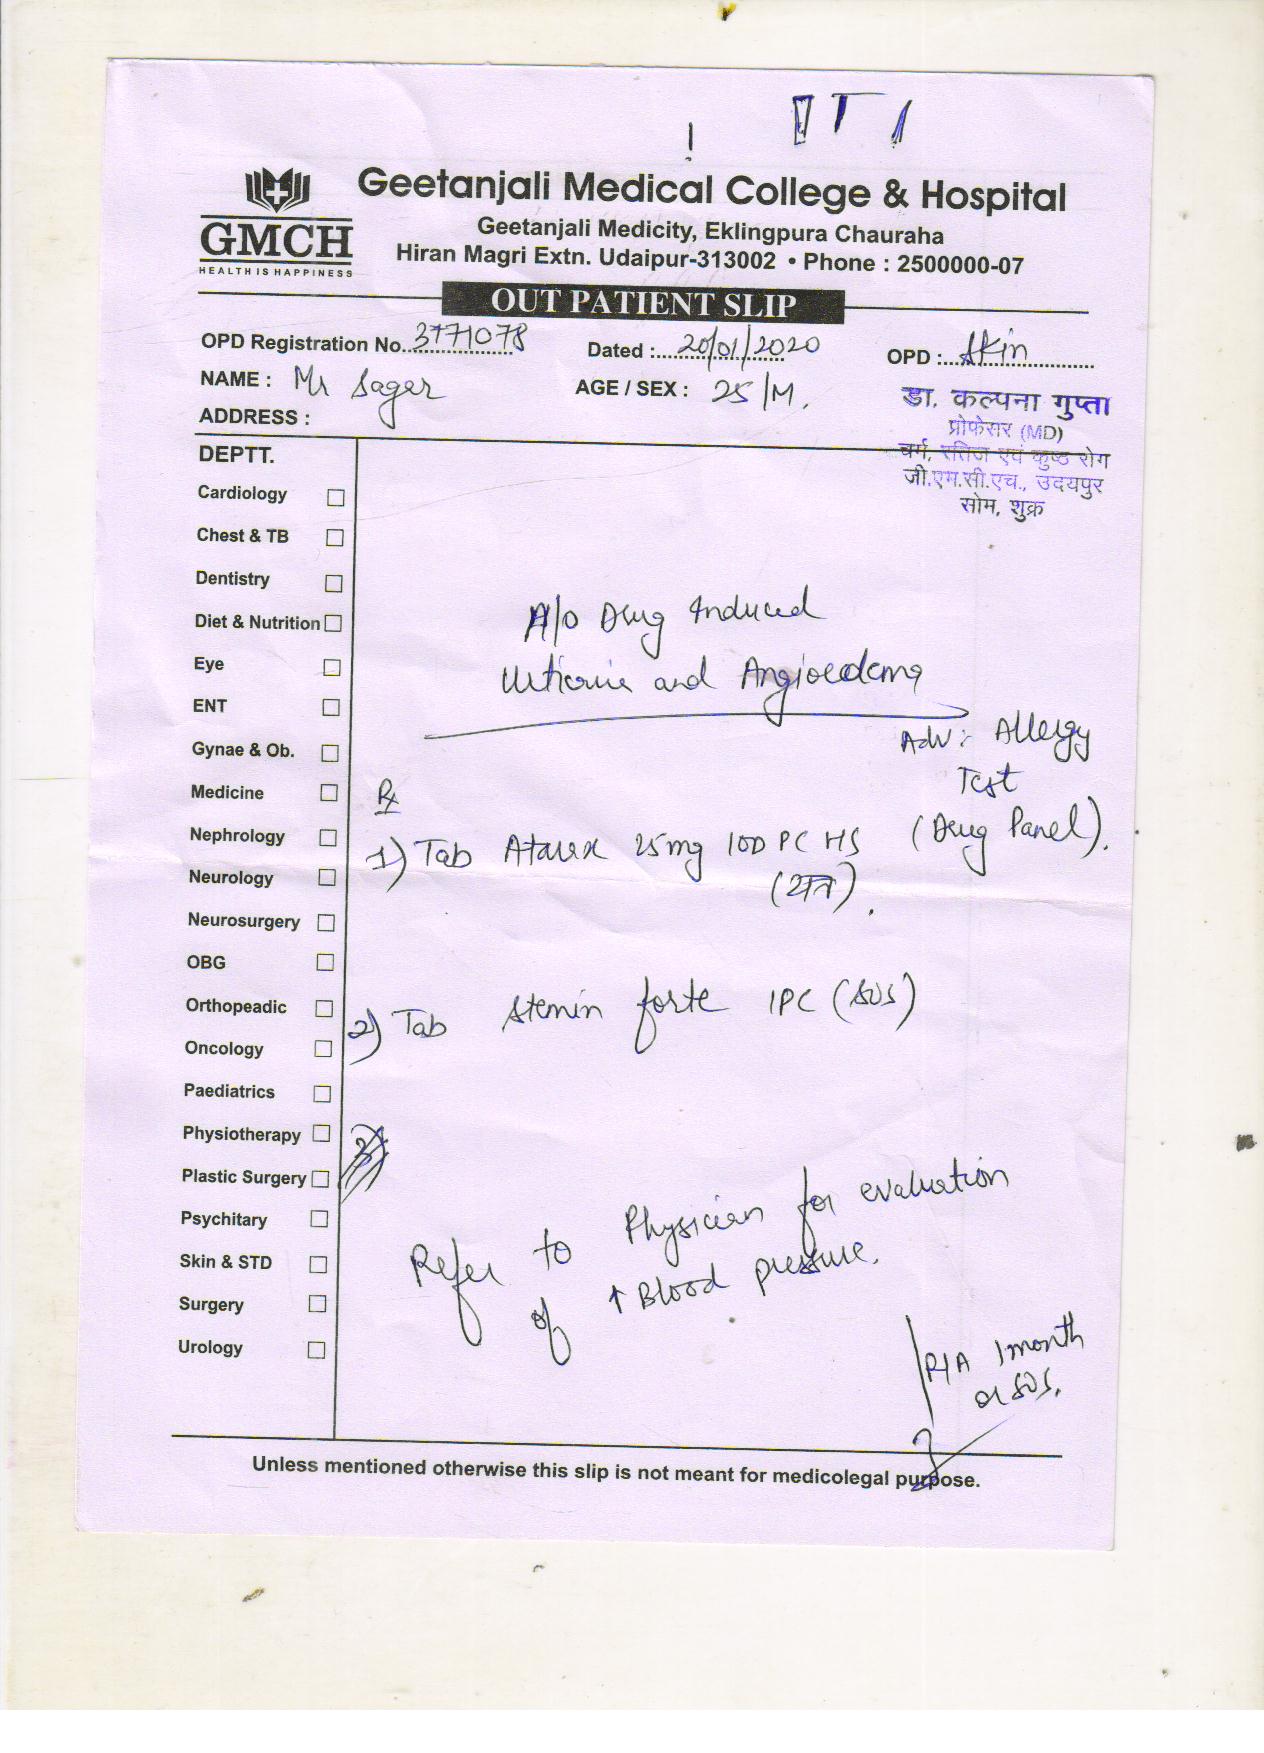 Geetanjali Medical College & Hospital
GMCH
HEALTH IS HAPPINESS
Geetanjali Medicity, Eklingpura Chauraha
Hiran Magri Extn. Udaipur-313002 • Phone : 2500000-07
OUT PATIENT SLIP
OPD Registration No. 3771078 Dated : 20/01/2020 OPD : Skin
NAME : Mr Sager AGE / SEX : 25/M.
ADDRESS :
डा. कल्पना गुप्ता
प्रोफेसर (MD)
चर्म, रतिज एवं कुष्ठ रोग
जी.एम.सी.एच., उदयपुर
सोम, शुक्र
DEPTT.
Cardiology
Chest & TB
Dentistry
Diet & Nutrition
Eye
ENT
Gynae & Ob.
Medicine
Nephrology
Neurology
Neurosurgery
OBG
Orthopeadic
Oncology
Paediatrics
Physiotherapy
Plastic Surgery
Psychitary
Skin & STD
Surgery
Urology
Drug Induced
Urticaria and Angioedema
Adv: Allergy
Test
(Drug Panel).
Rx
1) Tab Atarex 25mg 1OD PC HS
(रात).
2) Tab Stemin forte 1PC (SOS)
Refer to Physician for evaluation
of ↑ Blood pressure.
1 month
or SOS.
Unless mentioned otherwise this slip is not meant for medicolegal purpose.